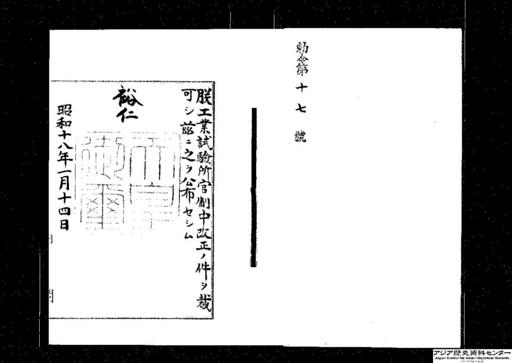 勅令第十七號
朕工業試驗所官制中改正ノ件ヲ裁
可シ茲ニ之ヲ公布セシム
裕仁
天皇御璽
昭和十八年一月十四日
アジア歴史資料センター
Japan Center for Asian Historical Records